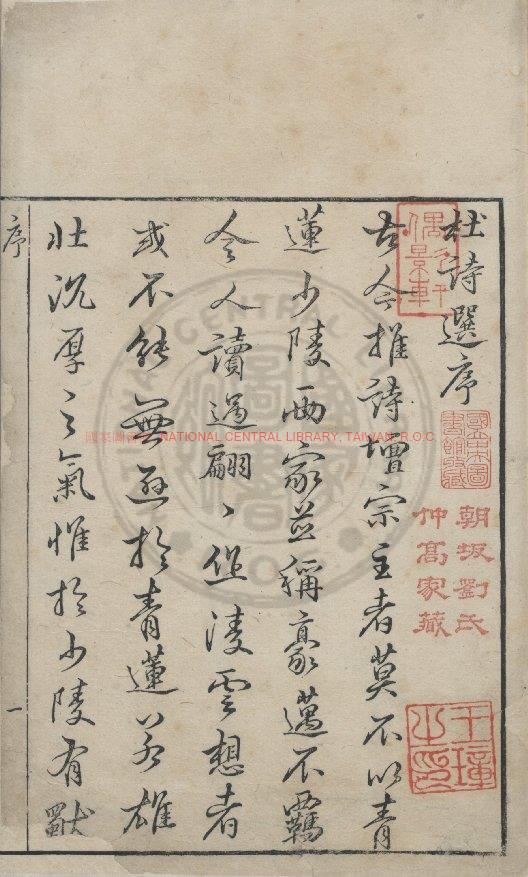 杜詩選序
古今推詩壇宗主者莫不以青
蓮少陵兩家並稱豪邁不羈
令人讀過翩〻作凌雲想者
或不能無遜於青蓮若雄
壯沉厚之氣惟於少陵有獻
序
一
偶景軒
國立中央圖書館收藏
朝坂劉氏
仲高家藏
王璋之印
國家圖書館 NATIONAL CENTRAL LIBRARY, TAIWAN, R.O.C.